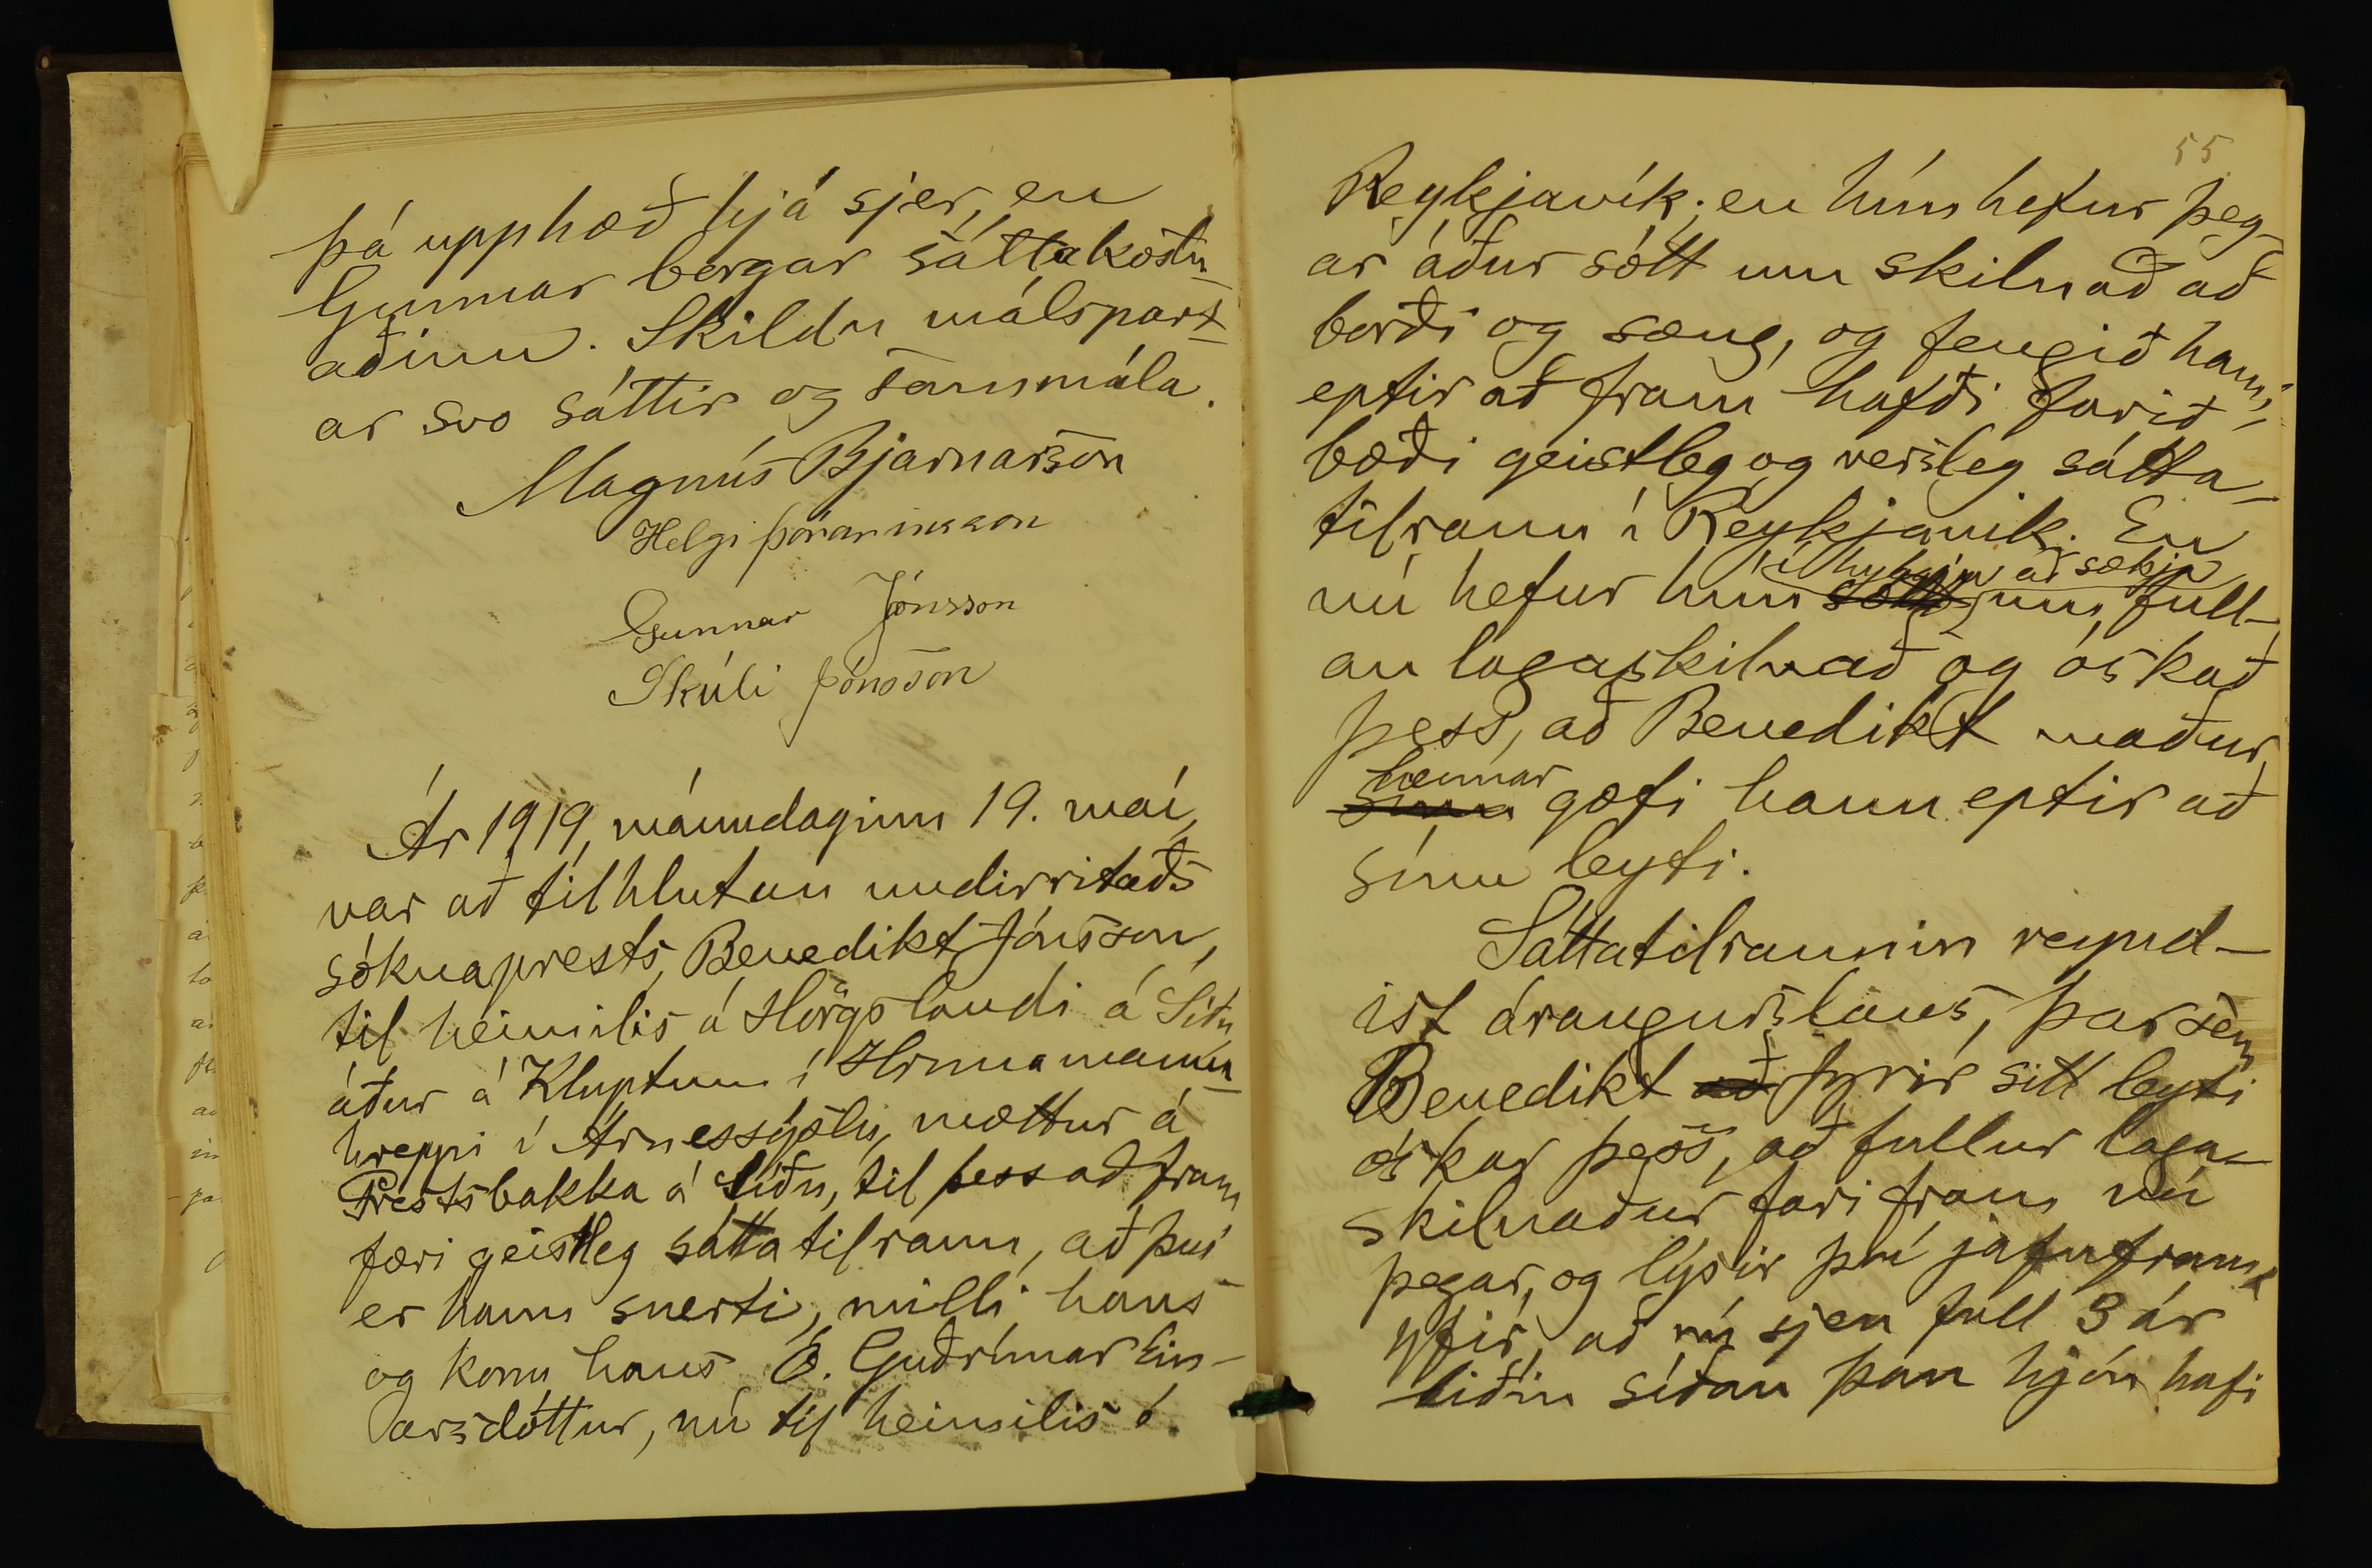 þá upphæð hjá sjer, en
Gunnar borgar sáttakostn-
aðinn. Skildu málspart-
ar svo sáttir og sammála.
Magnús Bjarnarson
Helgi Þórarinsson
Gunnar Jónsson
Skúli Jónsson
Ár 1919, mánudaginn 19. maí,
var að tilhlutun undirritaðs
sóknarprests, Benedikt Jónsson,
til heimilis á Hörgslandi á Síðu
áður á Kluptum í Hrunamanna-
hreppi í Árnessýslu, mættur á
Prestsbakka á Síðu, til þess að fram
færi geistleg sáttatilraun, að því
er hann snerti, milli hans
og konu hans Ó. Guðrúnar Ein-
arsdóttur, nú til heimilis í
55
Reykjavík; en hún hefur þeg-
ar áður sótt um skilnað að
borði og sæng, og fengið hann,
eptir að fram hafði farið
bæði geistleg og versleg sátta-
tilraun í Reykjavik. En
í hyggju að sækja
nú hefur hún sótt um full-
an lagaskilnað og óskað
þess, að Benedikt maður
hennar
sinn gæfi hann eptir að
sínu leyti.
Sáttatilraunin reynd-
ist árangurslaus, þar sem
Benedikt að fyrir sitt leyti
óskar þess, að fullur laga-
skilnaður fari fram nú
þegar, og lýsir því jafnframt
yfir, að nú sjeu full 3 ár
liðin síðan þau hjón hafi